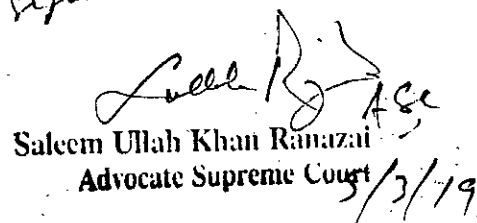 ASC
Saleem Ullah Khan Ranazai
Advocate Supreme Court
5/3/19